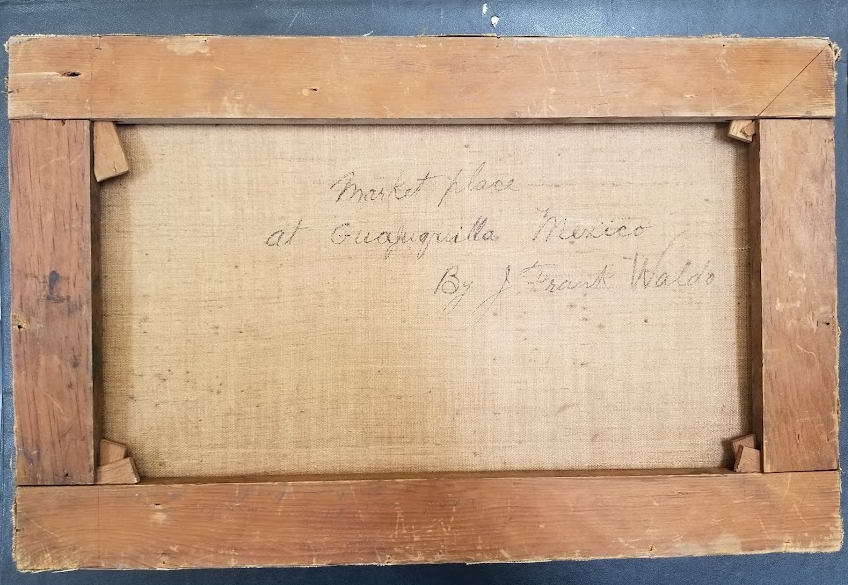 Market place
at Guajuquilla Mexico
By J Frank Waldo